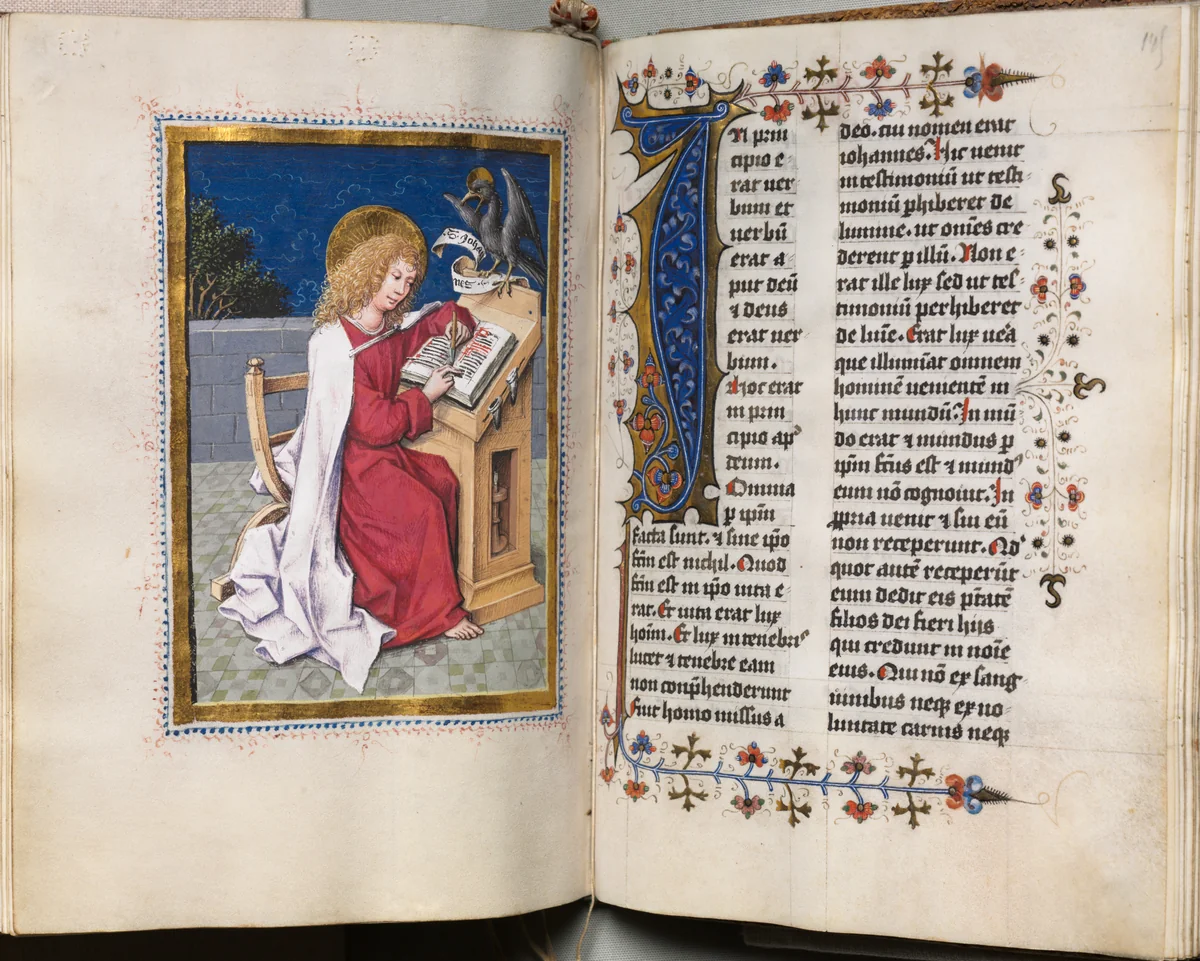 S. Joha
nes
145
In prin
cipio e
rat uer
bum et
uerbū
erat a
put deū
⁊ deus
erat uer
bum.
Hoc erat
in prin
cipio apꝰ
deum.
Omnia
p ipm̄
facta sunt. ⁊ sine ip̄o
fcm̄ est nichil. Quod
fcm̄ est in ip̄o uita e
rat. Et uita erat lux
hoīm. Et lux in tenebris
lucet ⁊ tenebre eam
non cōp̄henderunt
Fuit homo missus a
deo. cui nomen erat
iohannes. Hic uenit
in testimoniū ut testi
moniū phiberet de
lumine. ut om̄es cre
derent p illū. Non e
rat ille lux sed ut tes
timoniū perhiberet
de lūīe. Erat lux ue᷑a
que illumīat omnem
hominē uenientē in
hunc mundū. In mū
do erat ⁊ mundus p
ipm̄ fc̄us est ⁊ mundꝰ
eum nō cognouit. In
ꝓpria uenit ⁊ sui eū
non receperunt. Qd
quot autē receperūt
eum dedit eis p̄tatē
filios dei fieri hijs
qui credunt in noīe
eius. Qui nō ex sang
uinibus neqꝫ ex uo
luntate carnis neqꝫ